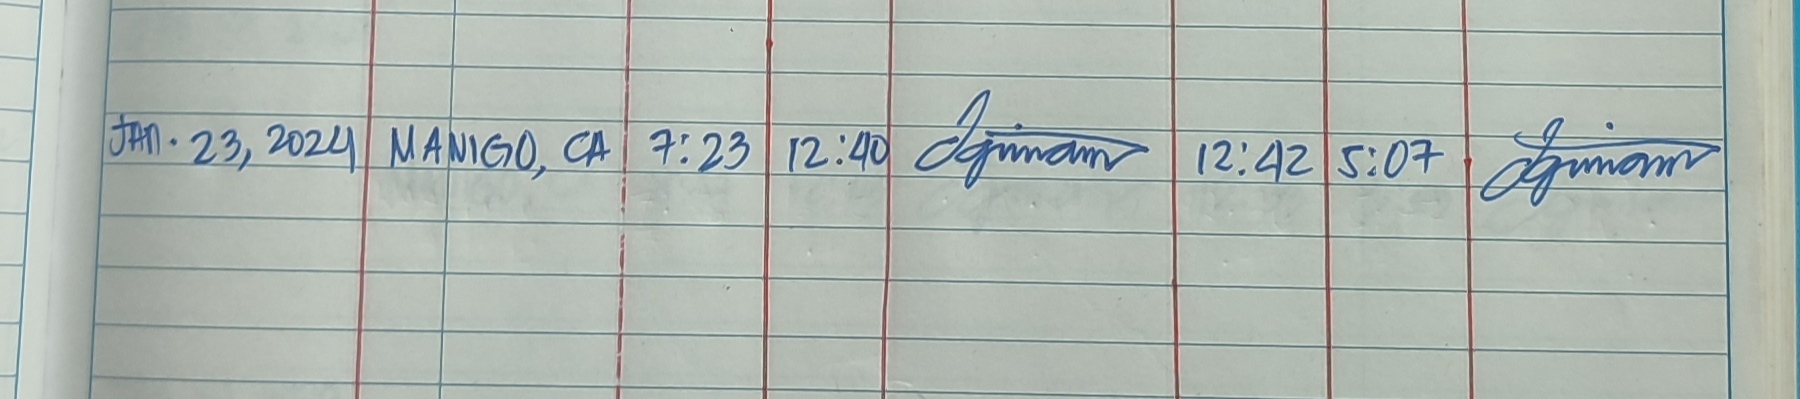 JAN. 23, 2024 MANIGO, CA 7:23 12:40 12:42 5:07